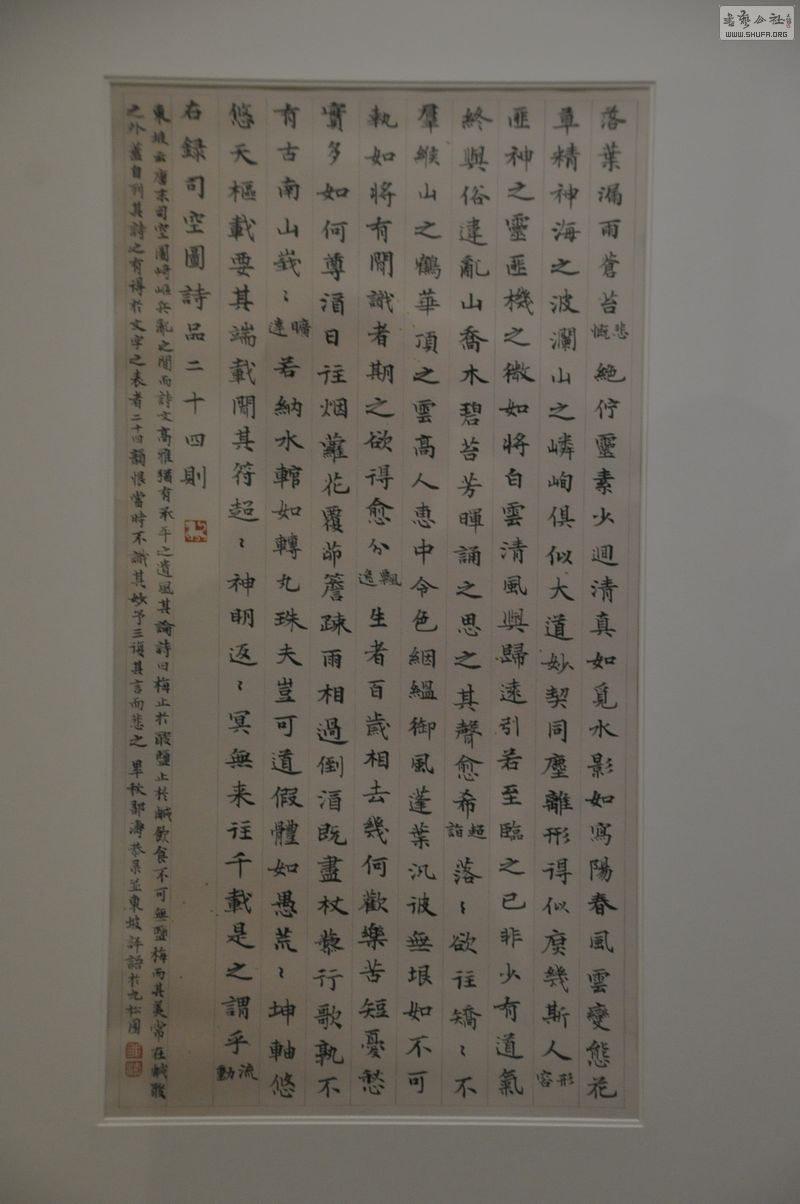 落葉漏雨蒼苔悲慨絶佇靈素少迴清真如覓水影如寫陽春風雲變態花
草精神海之波瀾山之嶙峋俱似大道妙契同塵離形得似庶幾斯人形容
匪神之靈匪機之微如將白雲清風與歸遠引若至臨之已非少有道氣
終與俗違亂山喬木碧苔芳暉誦之思之其聲愈希超詣落〻欲往矯〻不
羣緱山之鶴華頂之雲高人惠中令色絪緼御風蓬葉汎彼無垠如不可
執如將有聞識者期之欲得愈分飄逸生者百歲相去幾何歡樂苦短憂愁
實多如何尊酒日往烟蘿花覆茆簷疎雨相過倒酒既盡杖藜行歌孰不
有古南山峩〻曠達若納水輨如轉丸珠夫豈可道假體如愚荒〻坤軸悠
悠天樞載要其端載聞其符超〻神明返〻冥無来往千載是之謂乎流動
右錄司空圖詩品二十四則
東坡云唐末司空圖崎嶇兵亂之間而詩文高雅猶有承平之遺風其論詩曰梅止於酸鹽止於鹹飲食不可無鹽梅而其美常在鹹酸
之外蓋自列其詩之有得於文字之表者二十四韻恨當時不識其妙予三復其言而悲之 畢秋鄒濤恭录並東坡評語於九松園
書藝公社
WWW.SHUFA.ORG